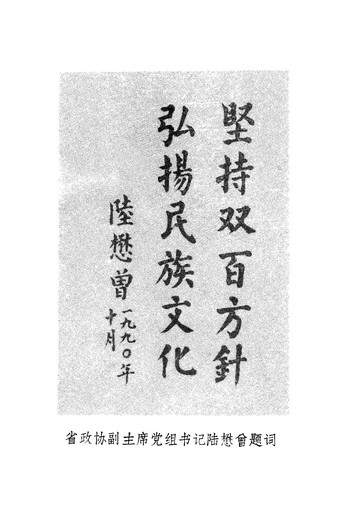 堅持双百方針
弘揚民族文化
陸懋曾
一九九〇年
十月
省政协副主席党组书记陆懋曾题词